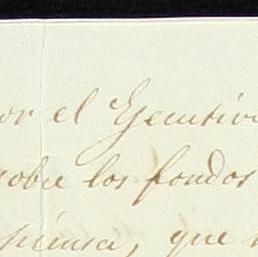 or el Ejecutiv
sobre los fondos
piensa, que